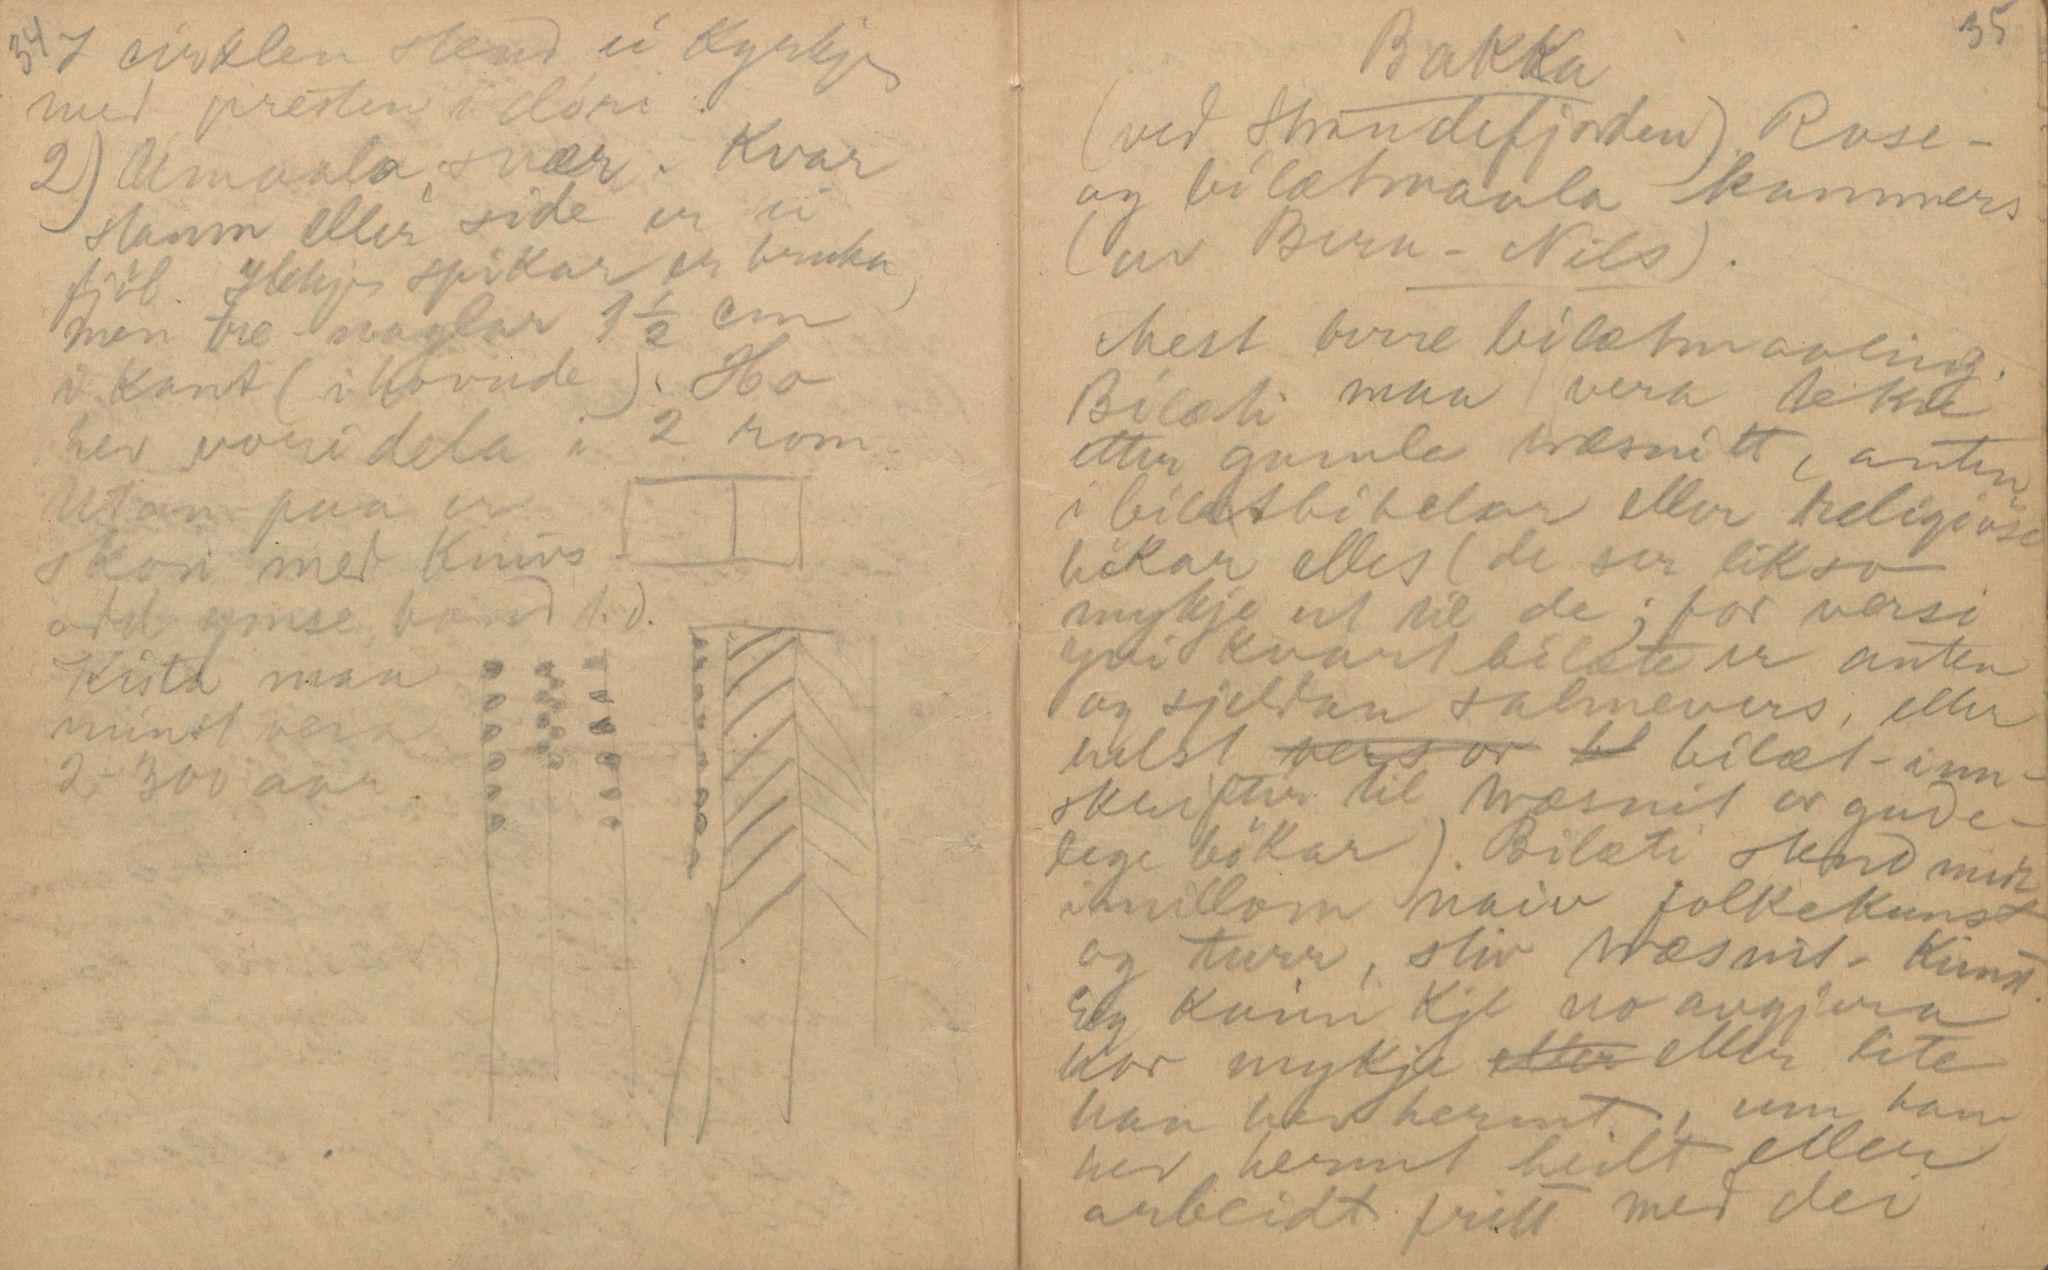 34
I cirklen stend ei Kyrkje
med presten i döri.
2) Umaala, svær. Kvar
stamm eller side er ei
fjöl. Ikkje spikar er bruka,
men tre-naglar 1 1/2 cm
i kant (i hovude). Ho
hev vori dela i 2 rom.
Utan paa er
skori med Knivs
odd ymse band t.d.
Kista maa
minst vera
2-300 aar.
35
Bakka
(ved Strandefjorden). Rose-
og bilætmaala kammers
(av Bera-Nils).
Mest berre bilætmaaling.
Bilæti maa vera tekne
etter gamle træsnitt, anten
i bilætbibelar eller religiöse
bökar elles (de ser likso
mykje ut til de; for versi
yvi kvart bilæte er anten
og sjeldan salmevers, eller
helst vers or til bilæt-inn-
skrifter til træsnit or gude-
lege bökar). Bilæti stend midt
imillom naiv folkekunst
og turr, stiv træsnit-Kunst.
Eg kunn Kje no avgjera
kor mykje etter eller lite
han hev hermt, um han
hev hermt heilt eller
arbeidt fritt med dei